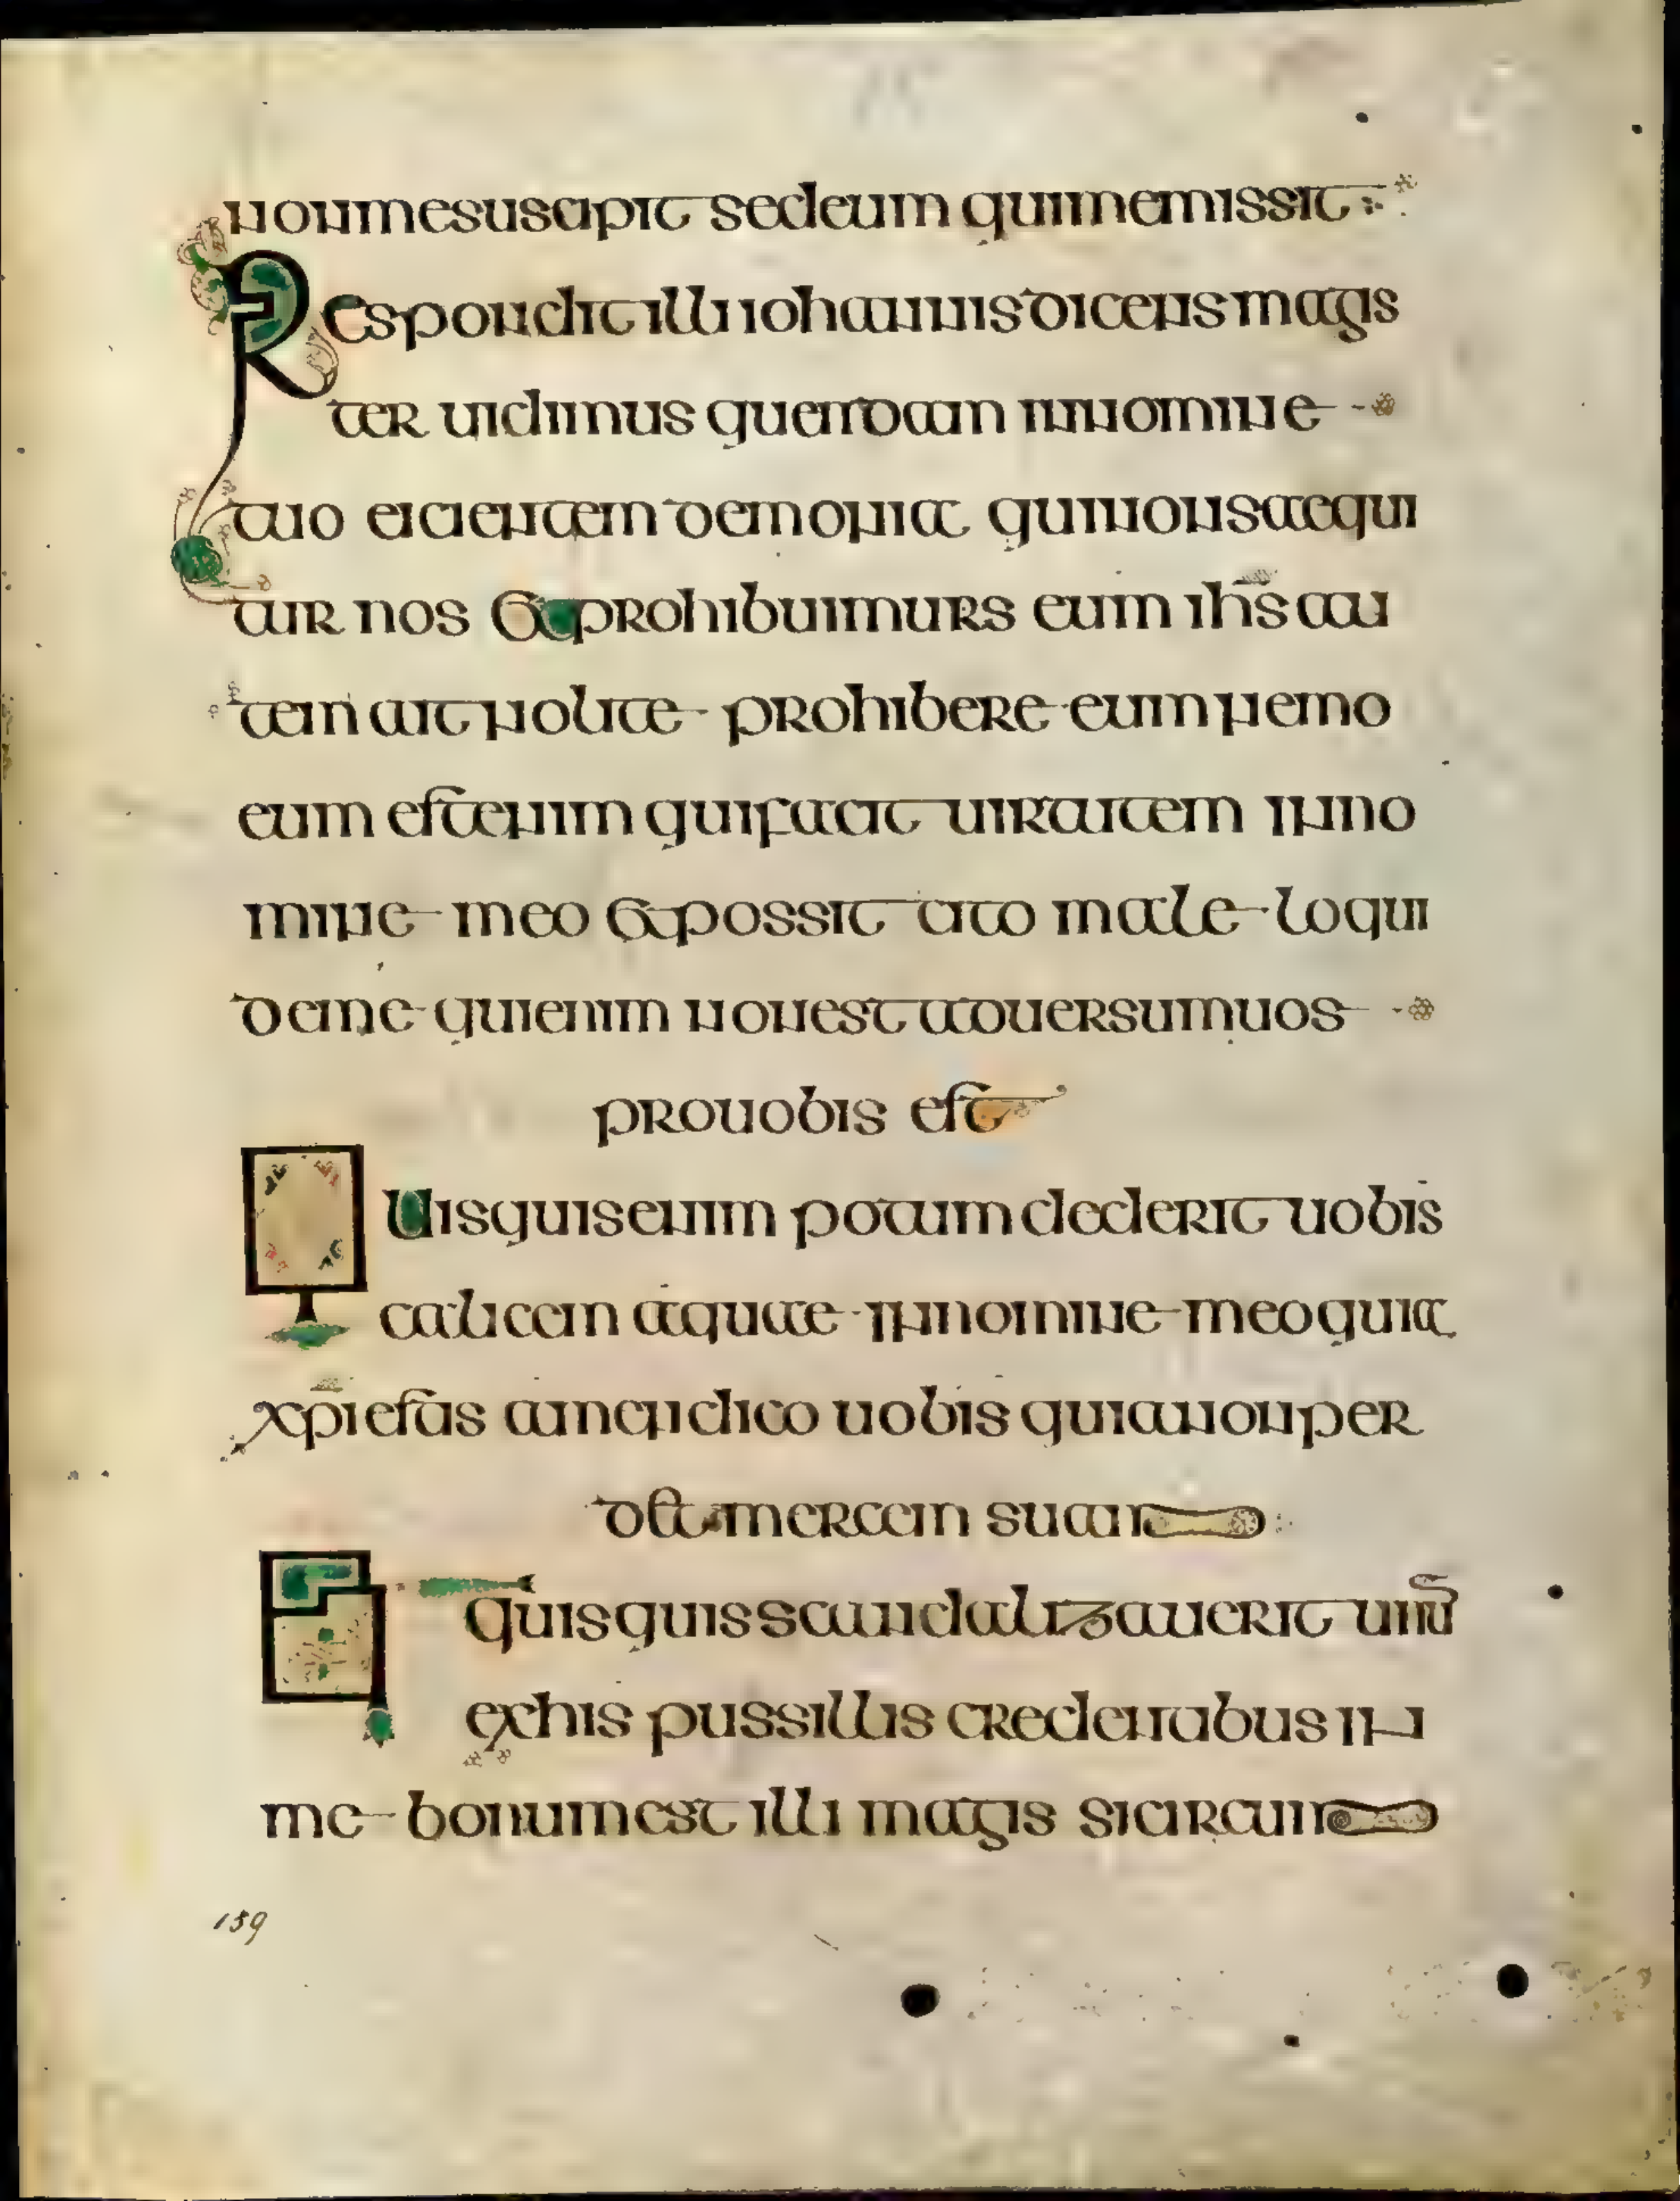 non me suscipit sed eum qui me missit
Respondit illi iohannis dicens magis
ter uidimus quendam in nomine
tuo eicientem demonia qui non sequi
tur nos et prohibuimurs eum ihs au
tem ait nolite prohibere eum nemo
eum est enim qui faciat uirtutem in no
mine meo et possit cito male loqui
de me qui enim non est aduersum uos
pro uobis est
Quisquis enim potum dederit uobis
calicem aquae in nomine meo quia
xpi estis amen dico uobis quia non per
det mercem suam
Et quisquis scandalizauerit unum
ex his pussillis credentibus in
me bonum est illi magis si circum
159